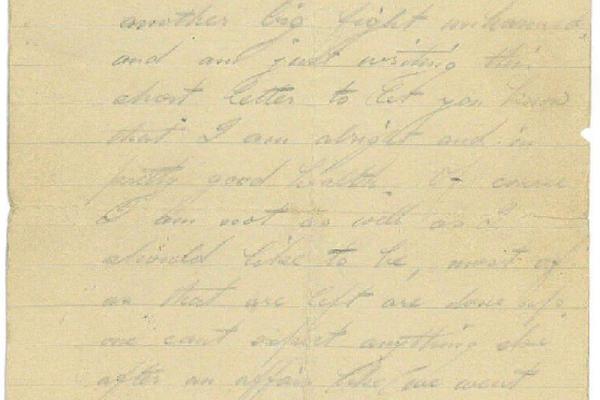 another big fight unharmed,
and am just writing this
short letter to let you know
that I am alright and in
pretty good health. Of course
I am not as well as I
should like to be, most of
us that are left are done up,
one cant expect anything else
after an affair like we went